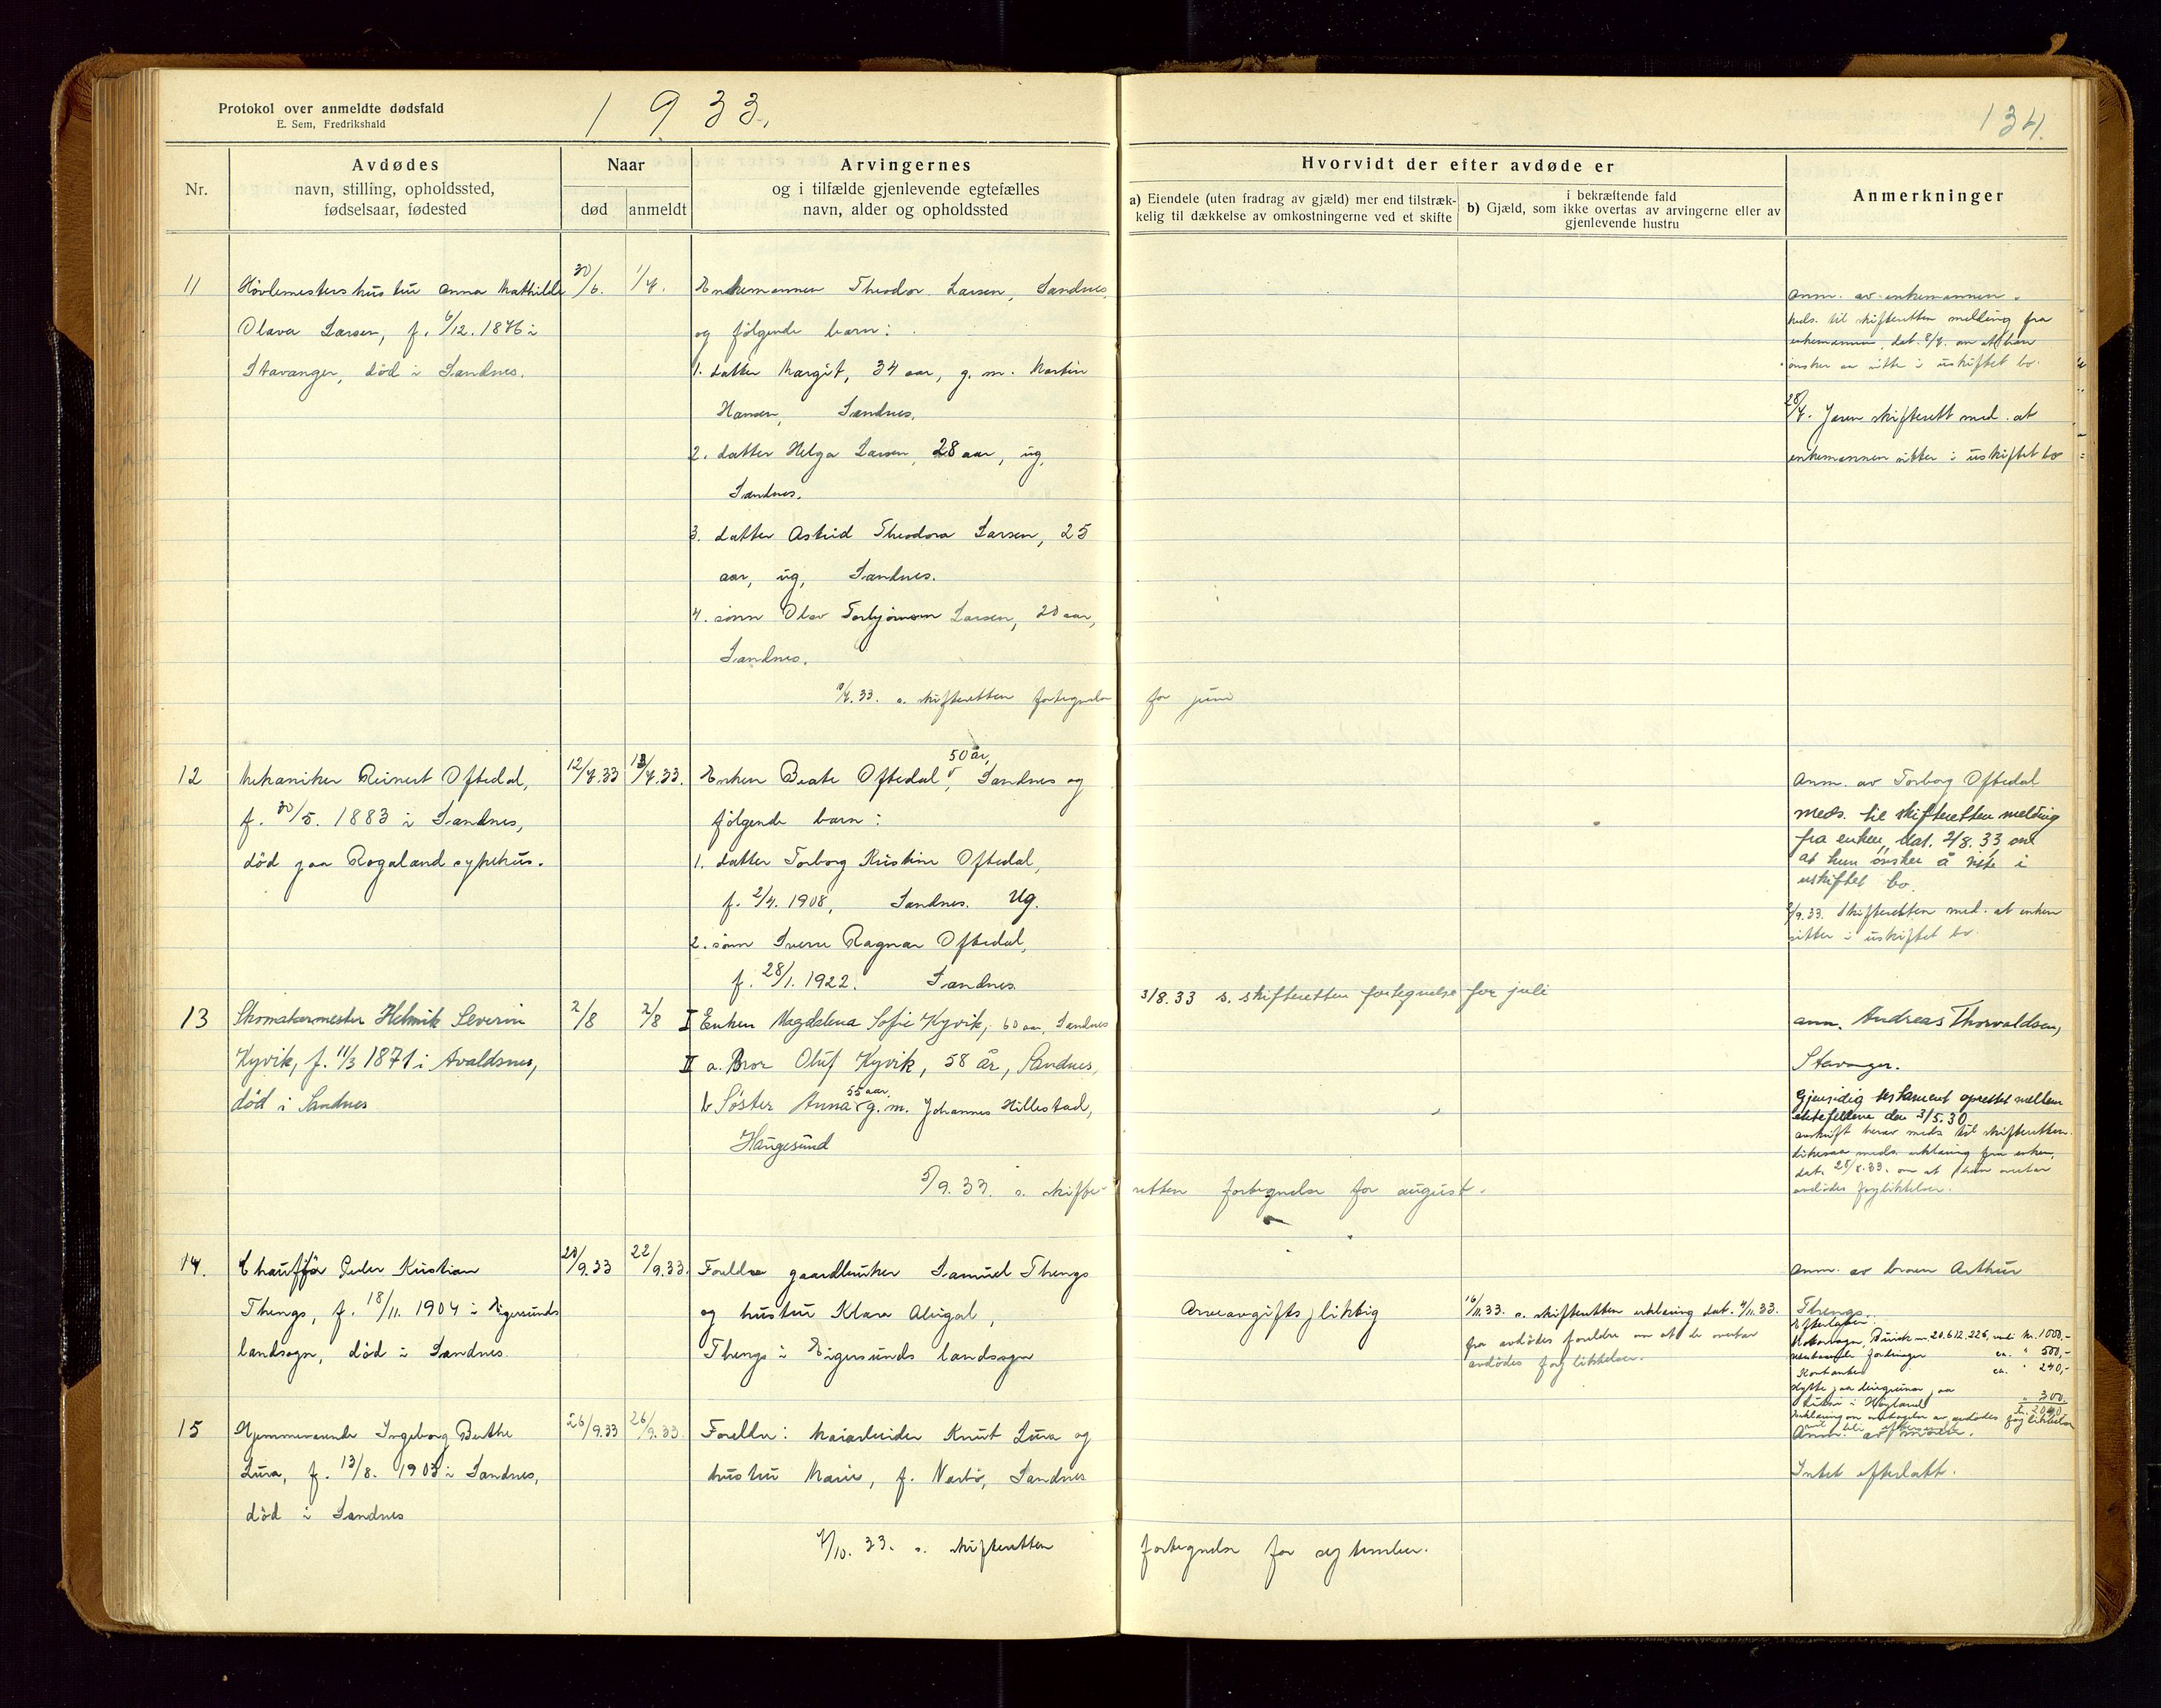 Protokol over anmeldte dødsfald
E. Sem, Fredrikshald
1933.
134.
Nr.
Avdødes
navn, stilling, opholdssted,
fødselsaar, fødested
Naar
død
anmeldt
Arvingernes
og i tilfælde gjenlevende egtefælles
navn, alder og opholdssted
Hvorvidt der efter avdøde er
a) Eiendele (uten fradrag av gjæld) mer end tilstræk-
kelig til dækkelse av omkostningerne ved et skifte
i bekræftende fald
b) Gjæld, som ikke overtas av arvingerne eller av
gjenlevende hustru
Anmerkninger
11
Høvlemesters hustru Anna Mathilde
Olava Larsen, f. 6/12. 1876 i
Stavanger, död i Sandnes.
30/6.
1/7.
Enkemannen Theodor Larsen, Sandnes,
og følgende barn:
1. datter Margit, 34 aar, g. m. Martin
Hansen, Sandnes.
2. datter Helga Larsen, 28 aar, ug,
Sandnes.
3. datter Astrid Theodora Larsen, 25
aar, ug, Sandnes.
4. sönn Olav Torbjörnsen Larsen, 20 aar,
Sandnes.
/7.33. s. skifteretten fortegnelse for juni
Anm. av enkemannen.
Meds. til skifteretten melding fra
enkemannen, dat. 8/7. om at han
önsker aa sitte i uskiftet bo.
28/7. Jæren skifterett med. at
enkemannen sitter i uskiftet bo
12
Mekaniker Reinert Oftedal,
f. 30/5. 1883 i Sandnes,
död paa Rogaland sykehus.
12/7.33
13/7.33.
50 år,
Enken Beate Oftedal, Sandnes og
fölgende barn:
1. datter Torborg Kristine Oftedal,
f. 2/4. 1908, Sandnes. Ug.
2. sönn Sverre Ragnar Oftedal,
f. 28/1. 1922. Sandnes.
3/8.33 s. skifteretten fortegnelse for juli
Anm. av Torborg Oftedal
Meds. til skifteretten melding
fra enken, dat. 2/8.33 om
at hun ønsker å sitte i
uskiftet bo.
/9.33. Skifteretten med. at enken
sitter i uskiftet bo.
13
Skomakermester Helmik Severin
Kyvik, f. 11/3 1871 i Avaldsnes,
död i Sandnes
2/8
2/8
I Enken Magdalena Sofie Kyvik, 60 aar, Sandnes
II a. Bror Oluf Kyvik, 58 år, Sandnes,
55 aar,
b Søster Anna g.m. Johannes Hillestad,
Haugesund
5/9.33. s. skifteretten fortegnelse for august.
ann. Andreas Thorvaldsen,
Stavanger.
Gjensidig testament oprettet mellem
ektefellene den 3/5.30
avskrift herav meds. til skifteretten.
Likesaa meds. erklæring fra enken,
dat. 28/8.33. om at hun overtar
avdödes forpliktelser.
14.
Chauffør Peder Kristian
Thengs, f. 18/11. 1904 i Eigersunds
landsogn, död i Sandnes.
20/9.33
22/9.33.
Foreldre gaardbruker Samuel Thengs
og hustru Klara Abigael,
Thengs i Eigersunds landsogn
Arveavgiftspliktig
16/11.33. s. skifteretten erklæring dat. 4/11.33.
fra avdödes foreldre om at de overtar
avdödes forpliktelser.
Anm. av broren Arthur
Thengs.
Efterlater:
Motorvogn, Buick nr. 20.612.226, verdi kr. 1000,-
utestaaende fordringer ca. " 500,-
Kontanter ca. " 240,-
Hytte paa leiegrunn paa
i Høyland " 300
kr. 2040,-
Erklæring om overtagelse av avdödes forpliktelser
15
Hjemmeværende Ingeborg Berthe
Lura, f. 13/8. 1903 i Sandnes,
död i Sandnes
26/9.33
26/9.33.
Foreldre: Maiarbeider Knut Lura og
hustru Marie, f. Nærbö, Sandnes
4/10. 33. s. skifteretten fortegnelse for september.
Anm. av moren.
Intet efterlatt.